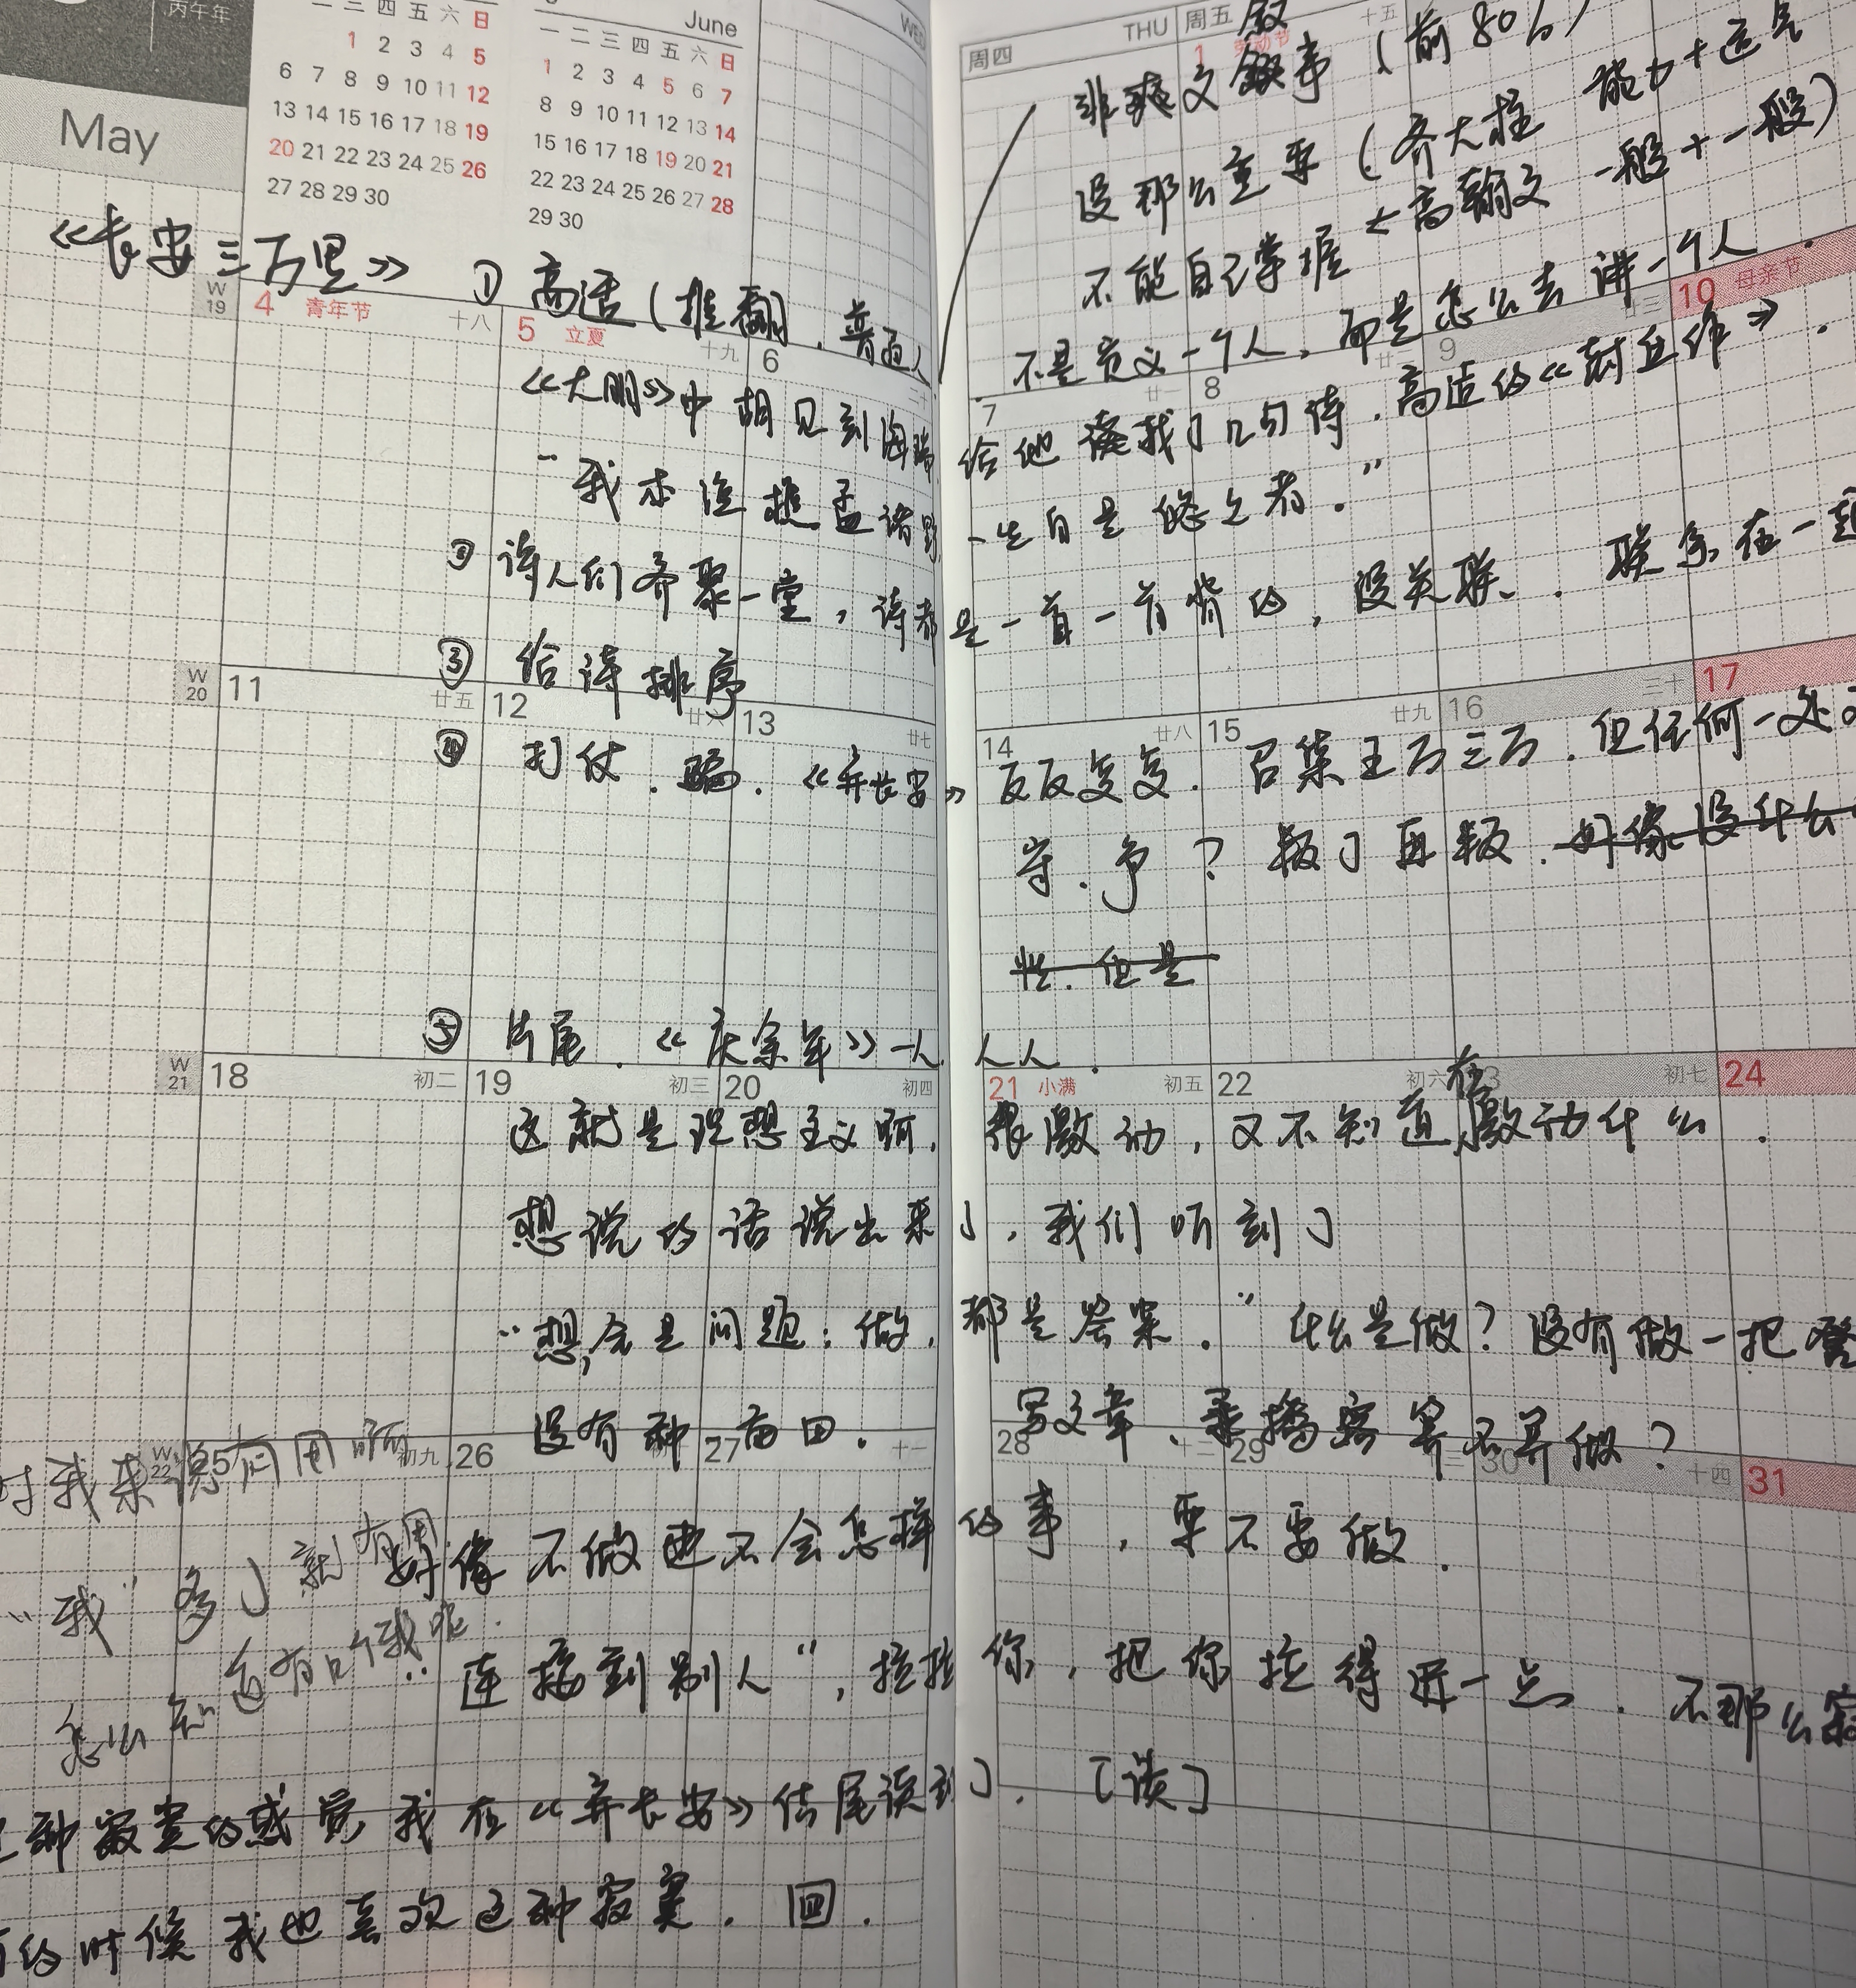 丙午年
May
June
一 二 三 四 五 六 日
1 2 3 4 5
6 7 8 9 10 11 12
13 14 15 16 17 18 19
20 21 22 23 24 25 26
27 28 29 30
一 二 三 四 五 六 日
1 2 3 4 5 6 7
8 9 10 11 12 13 14
15 16 17 18 19 20 21
22 23 24 25 26 27 28
29 30
WED
周四 THU 周五
1 劳动节 十五
非爽文叙事（前80%）
没那么重要（齐大柱 能力+运气
不能自己掌握 < 高翰文 一般+一般）
不是定义一个人，而是怎么去讲一个人.
《长安三万里》 ① 高适（推翻，普通人
W 19 4 青年节 十八 5 立夏 十九 6 7 廿一 8 廿二 9 廿三 10 母亲节
《大明》中胡见到海瑞 给他凑找了几句诗. 高适的《封丘作》.
“我本渔樵孟诸野 一生自是悠悠者.”
② 诗人们齐聚一堂，诗都是一首一首背的，没关联. 联系在一起
③ 给诗排序
W 20 11 廿五 12 廿六 13 廿七 14 廿八 15 廿九 16 三十 17
④ 打仗. 骗. 《弃长安》反反复复. 召集五万三万. 但任何一处
守. 争？ 叛了再叛. 好像没什么
性. 但是
⑤ 片尾. 《庆余年》一人 人人.
W 21 18 初二 19 初三 20 初四 21 小满 初五 22 初六 23 初七 24
这就是理想主义啊，很激动，又不知道在激动什么.
想说的话说出来了，我们听到了
“想，全是问题；做，都是答案.” 什么是做？没有做一把
没有种一亩田. 写文章、录播客算不算做？
W 22 25 初九 26 27 十一 28 十二 29 十三 30 十四 31
对我来说有用啊
好像不做也不会怎样的事，要不要做.
“我”多了就有用
怎么知道有几个我呢.
“连接到别人”，拉拉你，把你拉得近一点. 不那么寂
这种寂寞的感觉我在《弃长安》结尾读到了. 【读】
有的时候我也喜欢这种寂寞. 回.